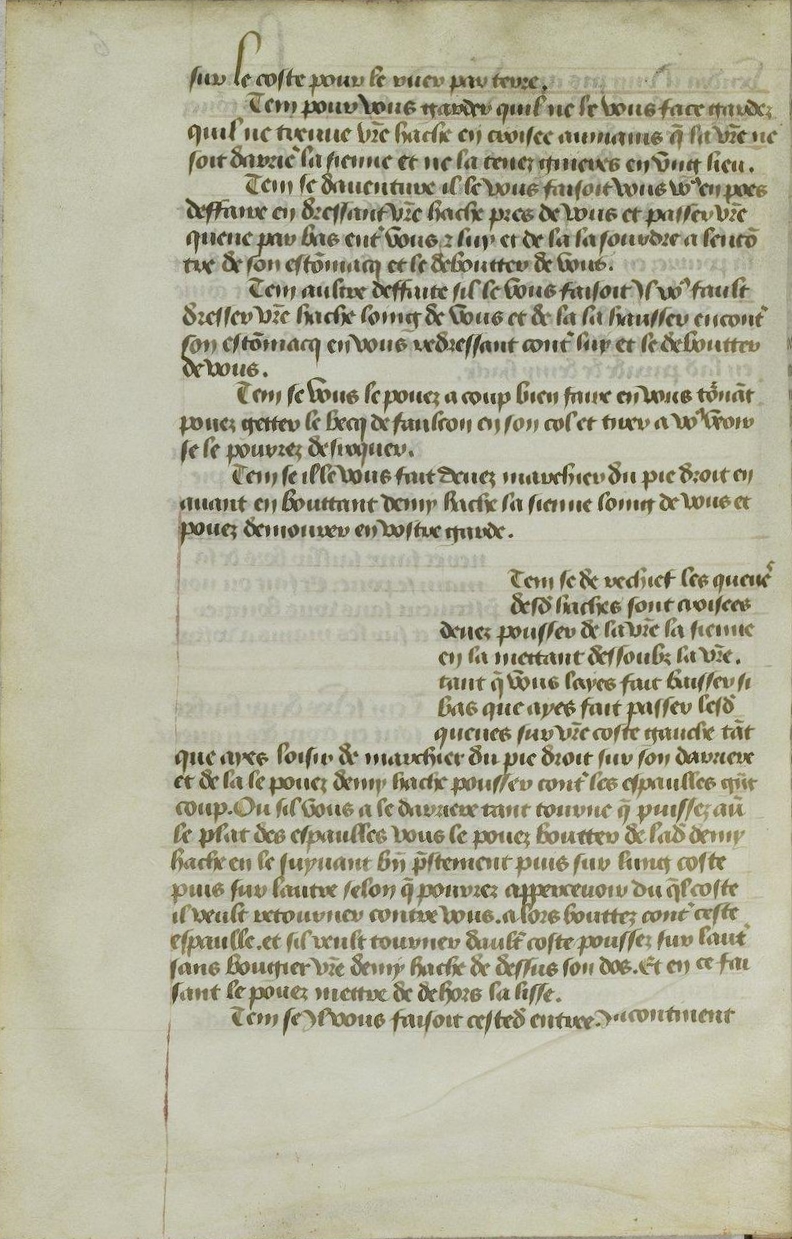 sur le coste pour le ruer par terre.
Tem pour vous garder quil ne le vous face gardez
quil ne tienne vr̃e hache en croisee aumains q̃ la vr̃e ne
soit darriẽ la sienne et ne la tenez gueres en vng lieu.
Tem se dauenture il le vous faisoit vous voꝰ en poes
deffaire en dressant vr̃e hache pres de vous et passer vr̃e
queue par bas ent̛ vous ⁊ luy et de la la sourdre a lencõ
tre de son estõmacq et le deboutter de vous.
Tem aultre deffaite sil le vous faisoit Il voꝰ fault
dresser vr̃e hache loing de vous et de la la haussier encont̛
son estõmacq en vous redressant cont̛ luy et le deboutter
de vous.
Tem se vous le pouez a coup bien faire en vous tõnãt
pouez getter le becq de faulcon en son col et tirer a voꝰ veoir
se le pourrez desroquer.
Tem se il le vous fait deuez marchier du pie droit en
auant en bouttant demy hache la sienne loing de vous et
pouez demourer en vostre garde.
Tem se de rechief les queueˢ
desd̛ haches sont croisees
deuez pousser de la vr̃e la sienne
en la mettant dessoubz la vr̃e.
tant q̃ vous layes fait baisser si
bas que ayes fait passer lesd̛
queues sur vr̃e coste gauche tãt
que ayes loisir de marchier du pie droit sur son darriere
et de la le pouez demy hache pousser cont̛ les espaulles
coup. Ou sil vous a le darriere tant tourne q̃ puissez
le plat des espaulles vous le pouez boutter de lad̛ demy
hache en le suyuant bñ p̃stement puis sur lung coste
puis sur lautre selon q̃ pourrez appercevoir du q̃l coste
il veult retourner contre vous. alors bouttez cont̛ ceste
espaulle. et sil veult tourner dault̛ coste poussez sur laut̛
sans bougier vr̃e demy hache de dessus son dos. Et en ce fai
sant le pouez mettre de dehors la lisse.
Tem se Il vous faisoit cested̛ entree Incontinent